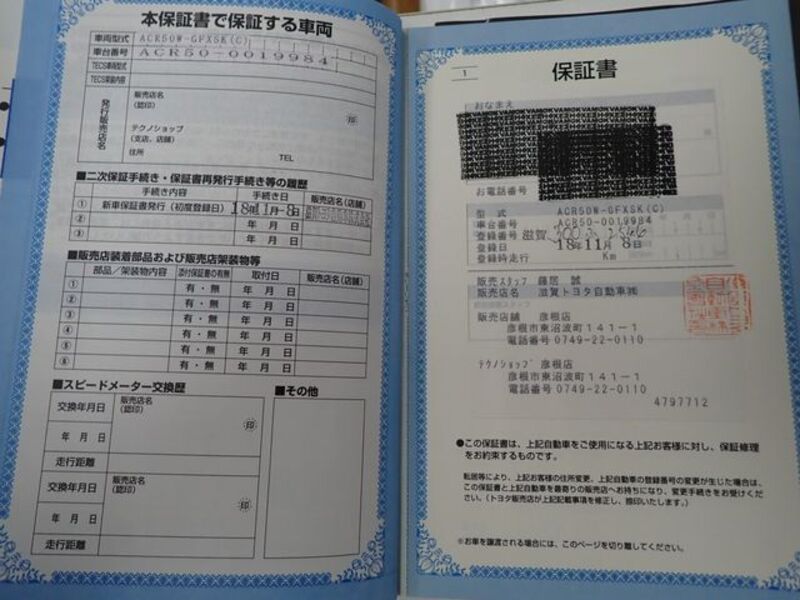 本保証書で保証する車両
車両型式 ACR50W-GFXSK(C)
車台番号 ACR50-0019984
TECS車両型式
TECS架装内容
発行販売店名
販売店名
(認印)
印
テクノショップ
(支店、店舗)
住所 TEL
■二次保証手続き・保証書再発行手続き等の履歴
手続き内容 手続き日 販売店名(店舗)
① 新車保証書発行(初度登録日) 18年11月-8日
② 年 月 日
③ 年 月 日
■販売店装着部品および販売店架装物等
部品/架装物内容 添付保証書の有無 取付日 販売店名(店舗)
① 有・無 年 月 日
② 有・無 年 月 日
③ 有・無 年 月 日
④ 有・無 年 月 日
⑤ 有・無 年 月 日
⑥ 有・無 年 月 日
■スピードメーター交換歴
交換年月日 販売店名
(認印)
年 月 日 印
走行距離
交換年月日 販売店名
(認印)
年 月 日 印
走行距離
■その他
1
保証書
おなまえ
お電話番号
型 式 ACR50W-GFXSK(C)
車台番号 ACR50-0019984
登録番号 滋賀
登録日 18年11月 8日
登録時走行 Km
販売スタッフ 鎌居 誠
販売店名 滋賀トヨタ自動車㈱
販売店舗 彦根店
彦根市東沼波町141-1
電話番号 0749-22-0110
テクノショップ 彦根店
彦根市東沼波町141-1
電話番号 0749-22-0110
4797712
●この保証書は、上記自動車をご使用になる上記お客様に対し、保証修理
をお約束するものです。
転居等により、上記お客様の住所変更、上記自動車の登録番号の変更が生じた場合は、
この保証書と上記自動車を最寄りの販売店へお持ちになり、変更手続きをお受けくだ
さい。(トヨタ販売店が上記記載事項を修正し、捺印いたします。)
※お車を譲渡される場合には、このページを切り離してください。